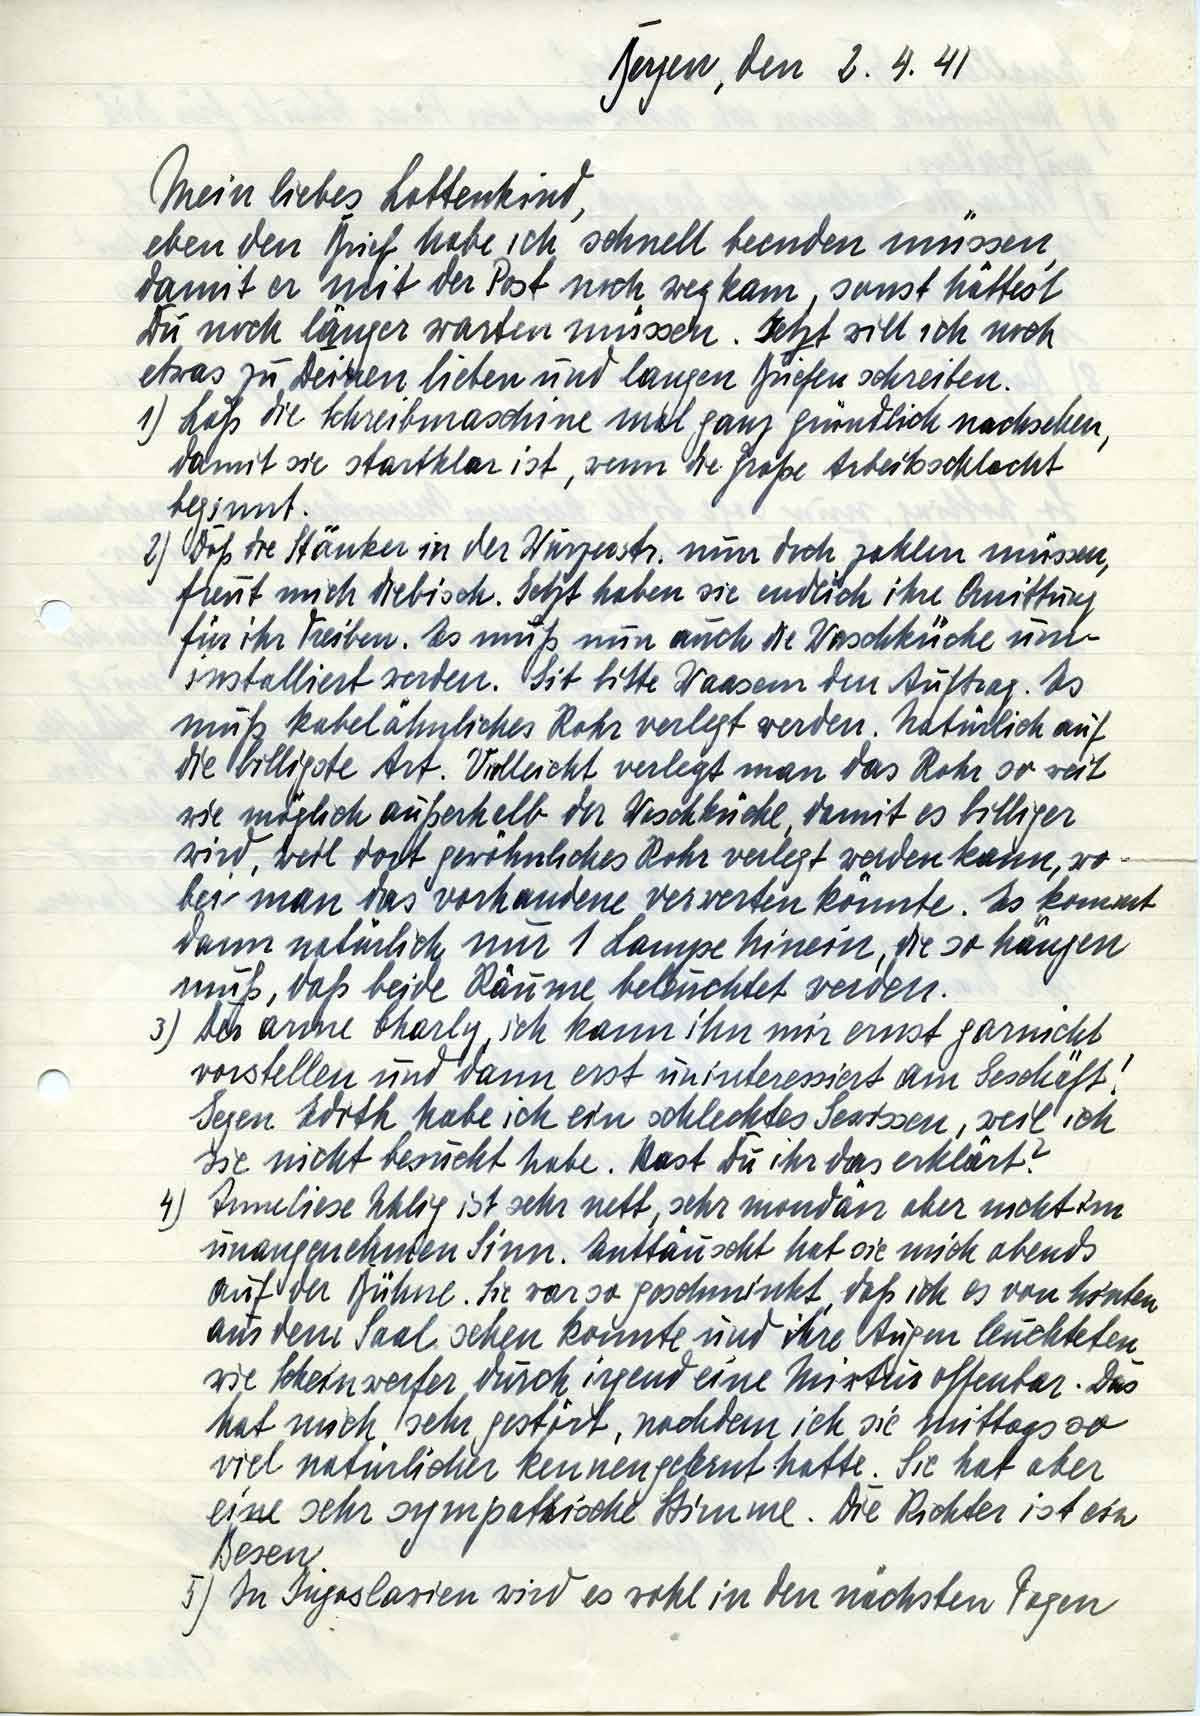 Bergen, den 2. 4. 41
Mein liebes Lottenkind,
eben den Brief habe ich schnell beenden müssen,
damit er mit der Post noch wegkam, sonst hättest
Du noch länger warten müssen. Jetzt will ich noch
etwas zu Deinen lieben und langen Briefen schreiben.
1) Laß die Schreibmaschine mal ganz gründlich nachsehen,
damit sie startklar ist, wenn die große Arbeitsschlacht
beginnt.
2) Daß die Stänker in der Würzenstr. nun doch zahlen müssen,
freut mich diebisch. Jetzt haben sie endlich ihre Quittung
für ihr Treiben. Es muß nun auch die Waschküche um-
installiert werden. Gib bitte Waasem den Auftrag. Es
muß kabelähnliches Rohr verlegt werden. Natürlich auf
die billigste Art. Vielleicht verlegt man das Rohr so weit
wie möglich außerhalb der Waschküche, damit es billiger
wird, weil dort gewöhnliches Rohr verlegt werden kann, wo-
bei man das vorhandene verwerten könnte. Es kommt
dann natürlich nur 1 Lampe hinein, die so hängen
muß, daß beide Räume beleuchtet werden.
3) Der arme Charly, ich kann ihn mir ernst garnicht
vorstellen und dann erst uninteressiert am Geschäft!
Gegen Edith habe ich ein schlechtes Gewissen, weil ich
sie nicht besucht habe. Hast Du ihr das erklärt?
4) Anneliese Uhlig ist sehr nett, sehr mondän aber nicht im
unangenehmen Sinn. Enttäuscht hat sie mich abends
auf der Bühne. Sie war so geschminkt, daß ich es von hinten
aus dem Saal sehen konnte und ihre Augen leuchteten
wie Scheinwerfer durch irgend eine Mixtur offenbar. Das
hat mich sehr gestört, nachdem ich sie mittags so
viel natürlicher kennengelernt hatte. Sie hat aber
eine sehr sympathische Stimme. Die Richter ist ein
Besen.
5) In Jugoslavien wird es wohl in den nächsten Tagen